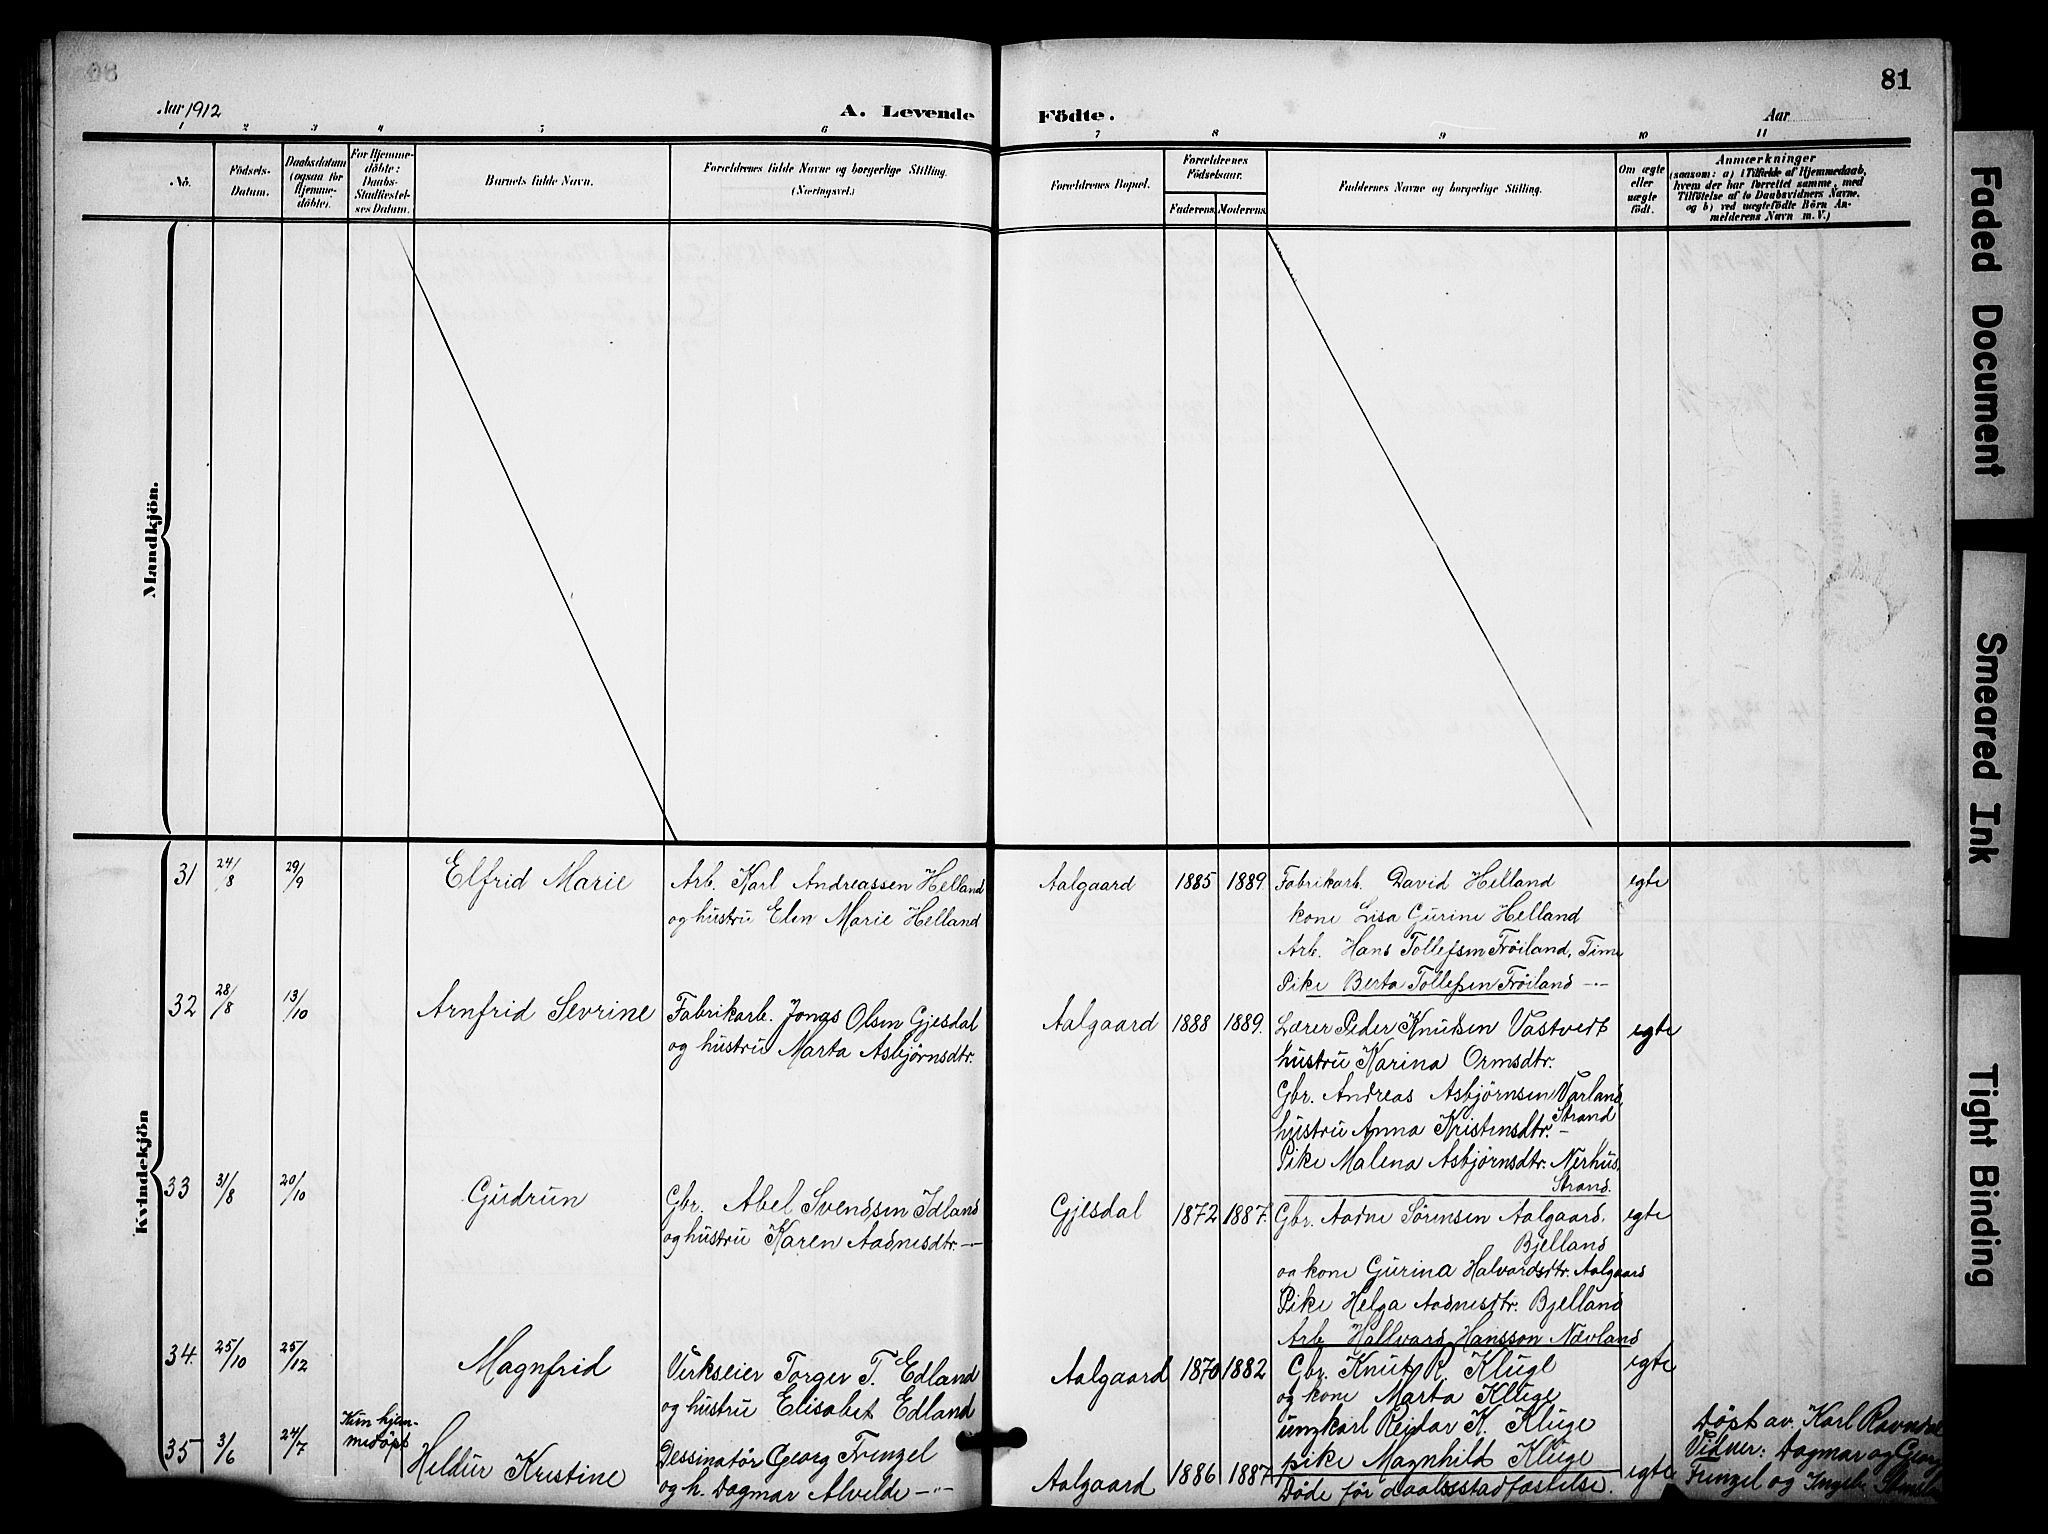 80
81
Aar 1912
A. Levende
Födte.
Aar
1 2 3 4 5 6 7 8 9 10 11
No.
Födsels-
Datum.
Daabsdatum
(ogsaa for
Hjemme-
döbte).
For Hjemme-
döbte:
Daabs-
Stadfæstel-
ses Datum.
Barnets fulde Navn.
Forældrenes fulde Navne og borgerlige Stilling.
(Næringsvei.)
Forældrenes Bopæl.
Forældrenes
Födselsaar.
Faderens.
Moderens.
Faddernes Navne og borgerlige Stilling.
Om ægte
eller
uægte
födt.
Anmærkninger
(saasom: a) i Tilfælde af Hjemmedaab,
hvem der har forrettet samme, med
Tilföielse af to Daabsvidners Navne.
og b) ved uægtefödte Börn An-
melderens Navn m. V.)
Mandkjön.
Kvindekjön
31 24/8 29/9 Elfrid Marie
Arb. Karl Andreassen Helland
og hustru Elen Marie Helland
Aalgaard 1885 1889.
Fabrikarb. David Helland
kone Lisa Gurine Helland
Arb. Hans Tollefsen Frøiland, Time
Pike Berta Tollefsen Frøiland -"-
egte
32 28/8 13/10 Arnfrid Sevrine
Fabrikarb. Jonas Olsen Gjesdal
og hustru Marta Asbjørnsdtr.
Aalgaard 1888 1889.
Lærer Peder Knudsen Vastveit
hustru Karina Ormsdtr.
Gbr. Andreas Asbjørnsen Varland,
Strand
hustru Anna Kristensdtr. -
Pike Malena Asbjørnsdtr. Nerhus,
Strand.
egte
33 31/8 20/10 Gudrun
Gbr. Abel Svendsen Idland
og hustru Karen Aadnesdtr. -"-
Gjesdal 1872 1887.
Gbr. Aadne Sørensen Aalgaard,
Bjelland
og kone Gurina Halvardsdtr. Aalgaard
Pike Helga Aadnesdtr. Bjelland
Arb. Hallvard Hansson Nævland
egte
34. 25/10 25/12 Magnfrid
Verkseier Torger T. Edland
og hustru Elisabet Edland
Aalgaard 1870 1882
Gbr. Knut R. Kluge
og kone Marta Kluge
ungkarl Reidar K. Kluge
pike Magnhild Kluge
egte
35 3/6 24/7
Kun hjem-
medøpt
Heldur Kristine
Dessinatør Georg Frenzel
og h. Dagmar Alvilde -"-
Aalgaard 1886 1887
Døde før daabsstadfæstelse.
egte
Døpt av Karl Ravndal
Vidner: Dagmar og Georg
Frenzel og Ingeb.
Faded Document
Smeared Ink
Tight Binding